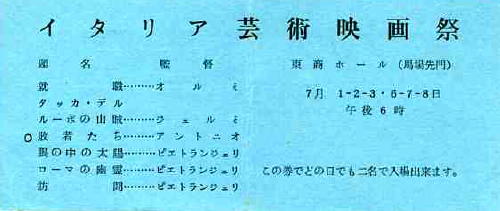 イタリア芸術映画祭
題名 監督
就職………オルミ
タッカ・デル
ルーポの山賊………ジェルミ
○敗者たち………アントニオ
掌の中の太陽………ピエトランジェリ
ローマの幽霊………ピエトランジェリ
訪問………ピエトランジェリ
東商ホール(馬場先門)
7月 1-2-3・5-7-8日
午後6時
この券でどの日でも二名で入場出来ます。